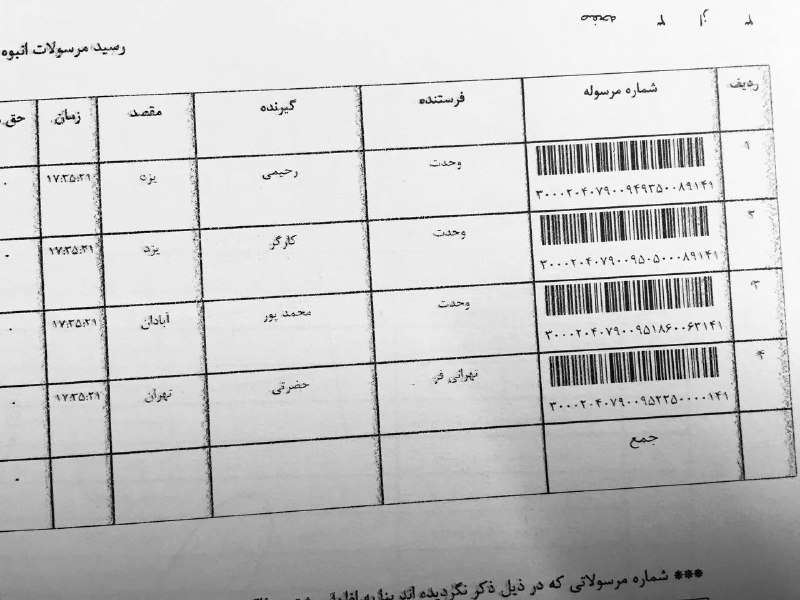 صفحه ۳ از ۳
رسید مرسولات انبوه
ردیف شماره مرسوله فرستنده گیرنده مقصد زمان حق
۱ ۳۰۰۰۲۰۴۰۷۹۰۰۹۴۹۳۵۰۰۸۹۱۴۱ وحدت رحیمی یزد ۱۷:۳۵:۲۱ ۰
۲ ۳۰۰۰۲۰۴۰۷۹۰۰۹۵۰۵۰۰۰۸۹۱۴۱ وحدت کارگر یزد ۱۷:۳۵:۲۱ ۰
۳ ۳۰۰۰۲۰۴۰۷۹۰۰۹۵۱۸۶۰۰۶۳۱۴۱ وحدت محمد پور آبادان ۱۷:۳۵:۲۱ ۰
۴ ۳۰۰۰۲۰۴۰۷۹۰۰۹۵۲۲۵۰۰۰۰۱۴۱ تهرانی فر حضرتی تهران ۱۷:۳۵:۲۱ ۰
جمع ۰
*** شماره مرسولاتی که در ذیل ذکر نگردیده اند بنا به